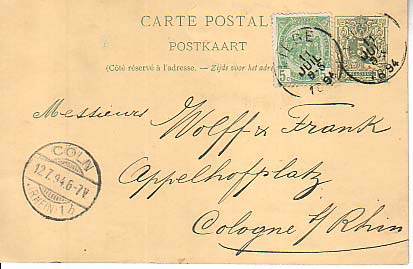 CARTE POSTALE
POSTKAART
(Côté réservé à l'adresse. — Zijde voor het adres
5c
11 JUIL 1894
Messieurs
Wolff & Frank
Appelhofplatz
Cologne s/Rhin
CÖLN
12.7.94.6-7V
(RHEIN) 1 h